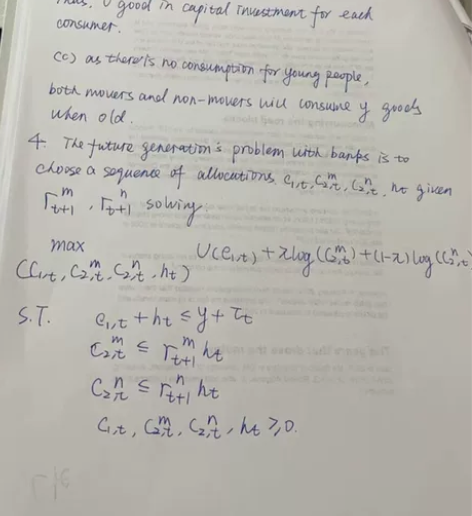 good in capital investment for each
consumer.
(c) as there is no consumption for young people,
both movers and non-movers will consume y goods
when old.
4. The future generation's problem with banks is to
choose a sequence of allocations C₁,t, C₂,t^m, C₂,t^n, ht given
r_{t+1}^m, r_{t+1}^n solving
max U(C₁,t) + π log(C₂,t^m) + (1-π) log(C₂,t^n)
(C₁,t, C₂,t^m, C₂,t^n, ht)
S.T. C₁,t + ht ≤ y + τt
C₂,t^m ≤ r_{t+1}^m ht
C₂,t^n ≤ r_{t+1}^n ht
C₁,t, C₂,t^m, C₂,t^n, ht ≥ 0.